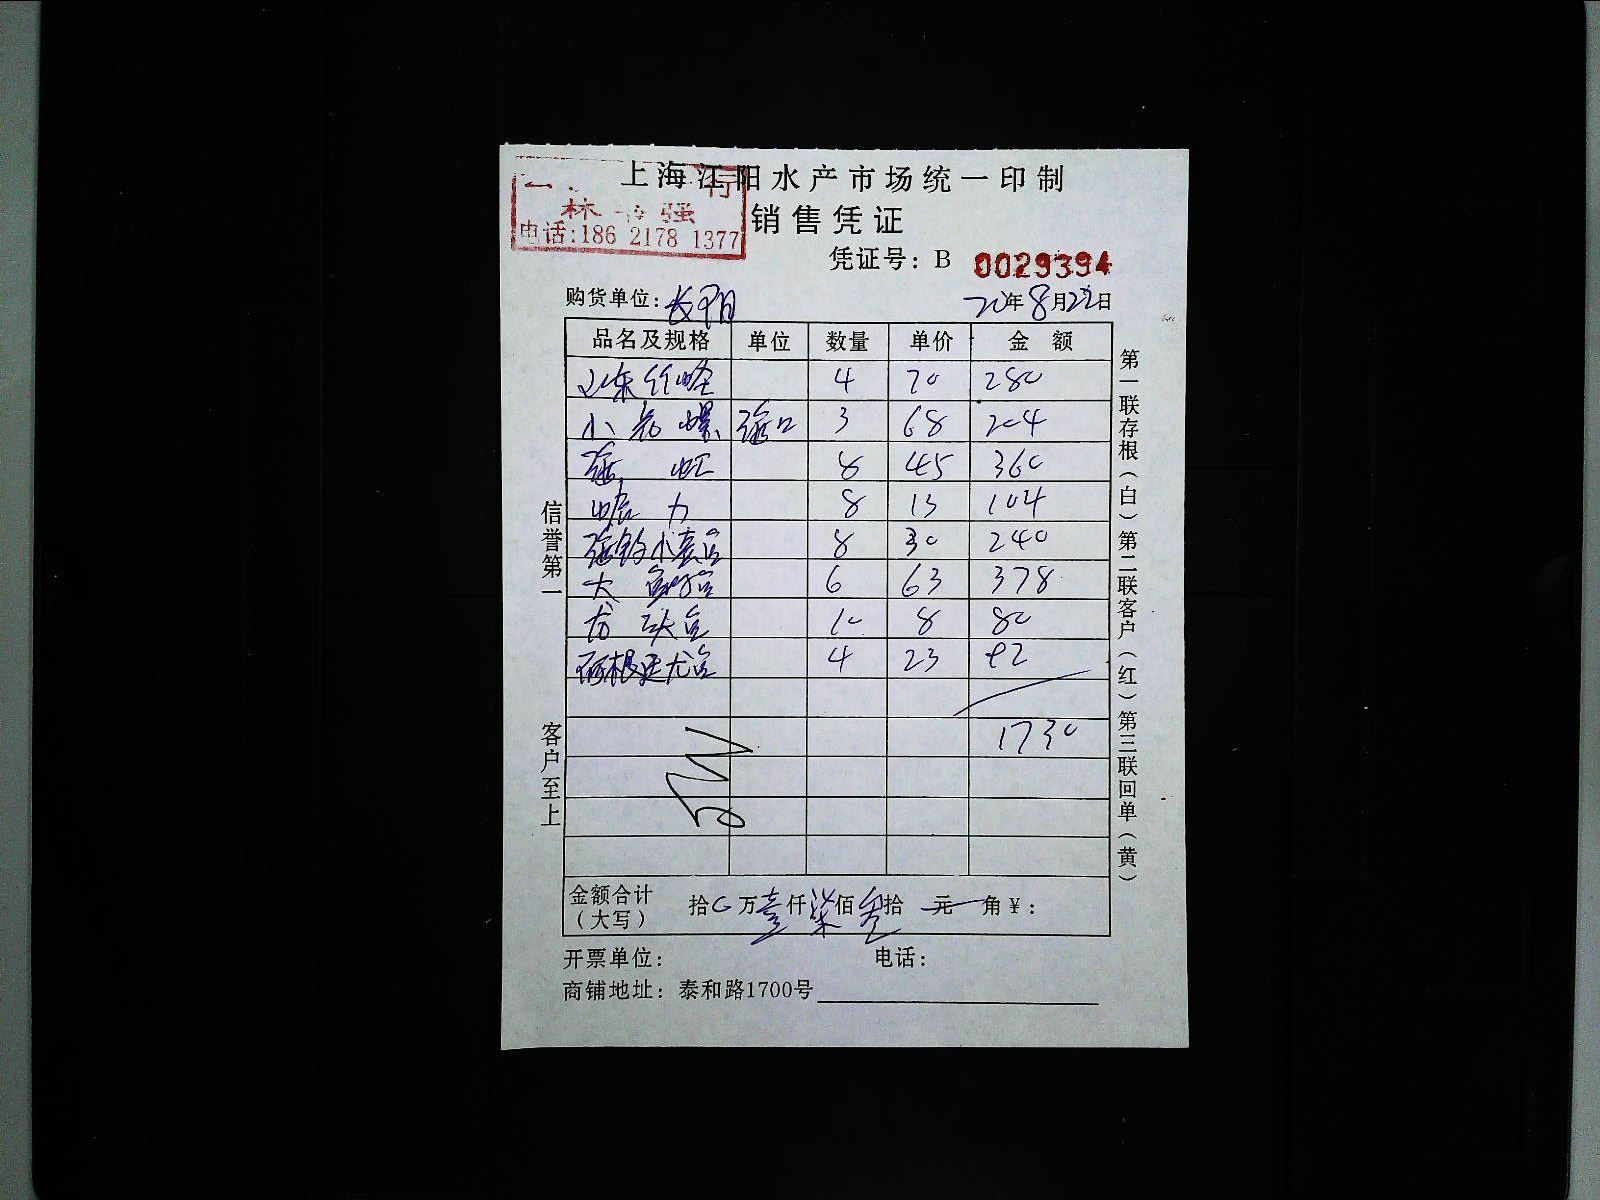 上海江阳水产市场统一印制
行
林 强
电话:186 2178 1377
销售凭证
凭证号: B 0029394
购货单位: 长阳 20年8月22日
品名及规格 单位 数量 单价 金 额
4 70 280
小 螺 3 68 204
8 45 360
8 13 104
8 30 240
大 6 63 378
龙 10 8 80
阿根廷 4 23 92
1730
金额合计(大写) 拾 万壹仟柒佰叁拾 元 角¥:
开票单位: 电话:
商铺地址: 泰和路1700号
信誉第一 客户至上
第一联存根(白)第二联客户(红)第三联回单(黄)